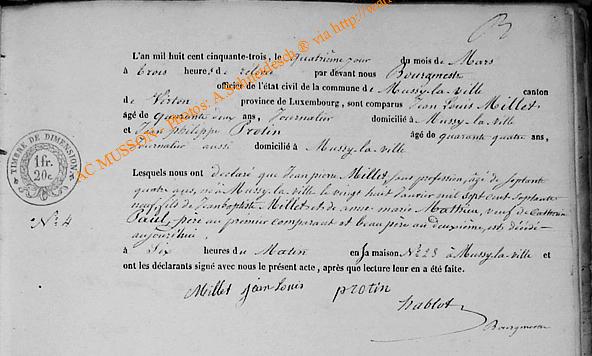 B
L'an mil huit cent cinquante-trois, le quatrième jour du mois de Mars
à trois heures de relevée par devant nous Bourgmestre
officier de l'état civil de la commune de Mussy-la-ville canton
de Virton province de Luxembourg, sont comparus Jean Louis Millet
âgé de quarante deux ans, Journalier domicilié à Mussy-la-ville
et Jean philippe Protin âgé de quarante quatre ans,
Journalier aussi domicilié à Mussy-la-ville
Lesquels nous ont déclaré que Jean pierre Millet, sans profession, âgé de septante
quatre ans, né à Mussy-la-ville le vingt huit Janvier mil sept cent septante
neuf, fils de Jean baptiste Millet et de anne marie Mathieu, veuf de Catherine
Paul, père au premier comparant et beau père au deuxième, est décédé
aujourd'hui
à Six heures du Matin en sa maison N° 23 à Mussy-la-ville et
ont les déclarants signé avec nous le présent acte, après que lecture leur en a été faite.
Millet jean louis protin
hablot
Bourgmestre
N° 4
TIMBRE DE DIMENSION
1 fr.
20 c.
AC MUSSON - Photos: A.Schleidesch ® via http://